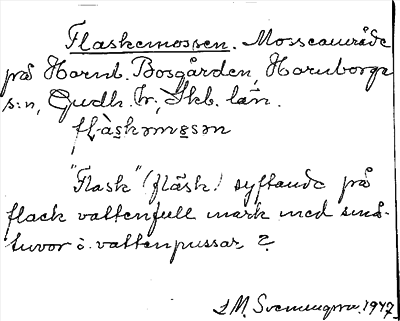 Flaskemossen. Mosseområde
på Hornb. Bosgården, Hornborga
s:n, Gudh. hr, Skb. län.
flàskəmɵsən
"Flask" (fläsk) syftande på
flack vattenfull mark med små-
tuvor o. vattenpussar ?
1947